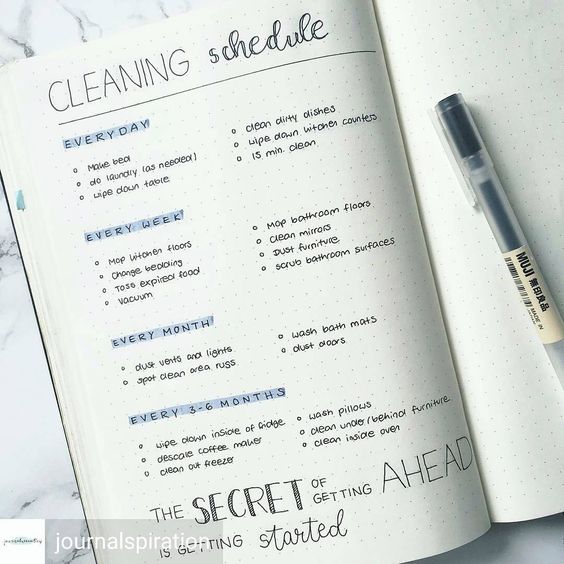 CLEANING schedule
EVERYDAY
o Make bed
o do laundry (as needed)
o wipe down table
o clean dirty dishes
o wipe down kitchen counters
o 15 min. clean
EVERY WEEK
o Mop kitchen floors
o Change bedding
o Toss expired food
o Vacuum
o Mop bathroom floors
o Clean mirrors
o Dust furniture
o scrub bathroom surfaces
EVERY MONTH
o dust vents and lights
o spot clean area rugs
o wash bath mats
o dust doors
EVERY 3-6 MONTHS
o wipe down inside of fridge
o descale coffee maker
o clean out freezer
o wash pillows
o clean under/behind furniture
o clean inside oven
THE SECRET OF GETTING AHEAD
IS GETTING started
MUJI 無印良品
MADE IN
journalspiration